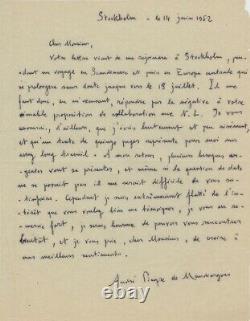 Stockholm - le 14 juin 1952
Cher Monsieur,
Votre lettre vient de me rejoindre à Stockholm, pen-
dant un voyage en Scandinavie et puis en Europe centrale que
je prolongerai sans doute jusque vers le 18 juillet. Il me
faut donc, en ce moment, répondre par la négative à votre
aimable proposition de collaboration aux N. L. Je vous
avouerai, d'ailleurs, que j'écris lentement et peu aisément,
et qu'un texte de quinze pages représente pour moi un
assez long travail. A mon retour, plusieurs besognes
vont se présenter, et même si la question de date
ne se posait pas il me serait difficile de vous sa-
tisfaire. Cependant je suis extrêmement flatté de l'in-
térêt que vous voulez bien me témoigner, je vous en re-
mercie fort, je serai heureux de pouvoir vous rencontrer
bientôt, et je vous prie, cher Monsieur, de croire à
mes meilleurs sentiments.
André Pieyre de Mandiargues